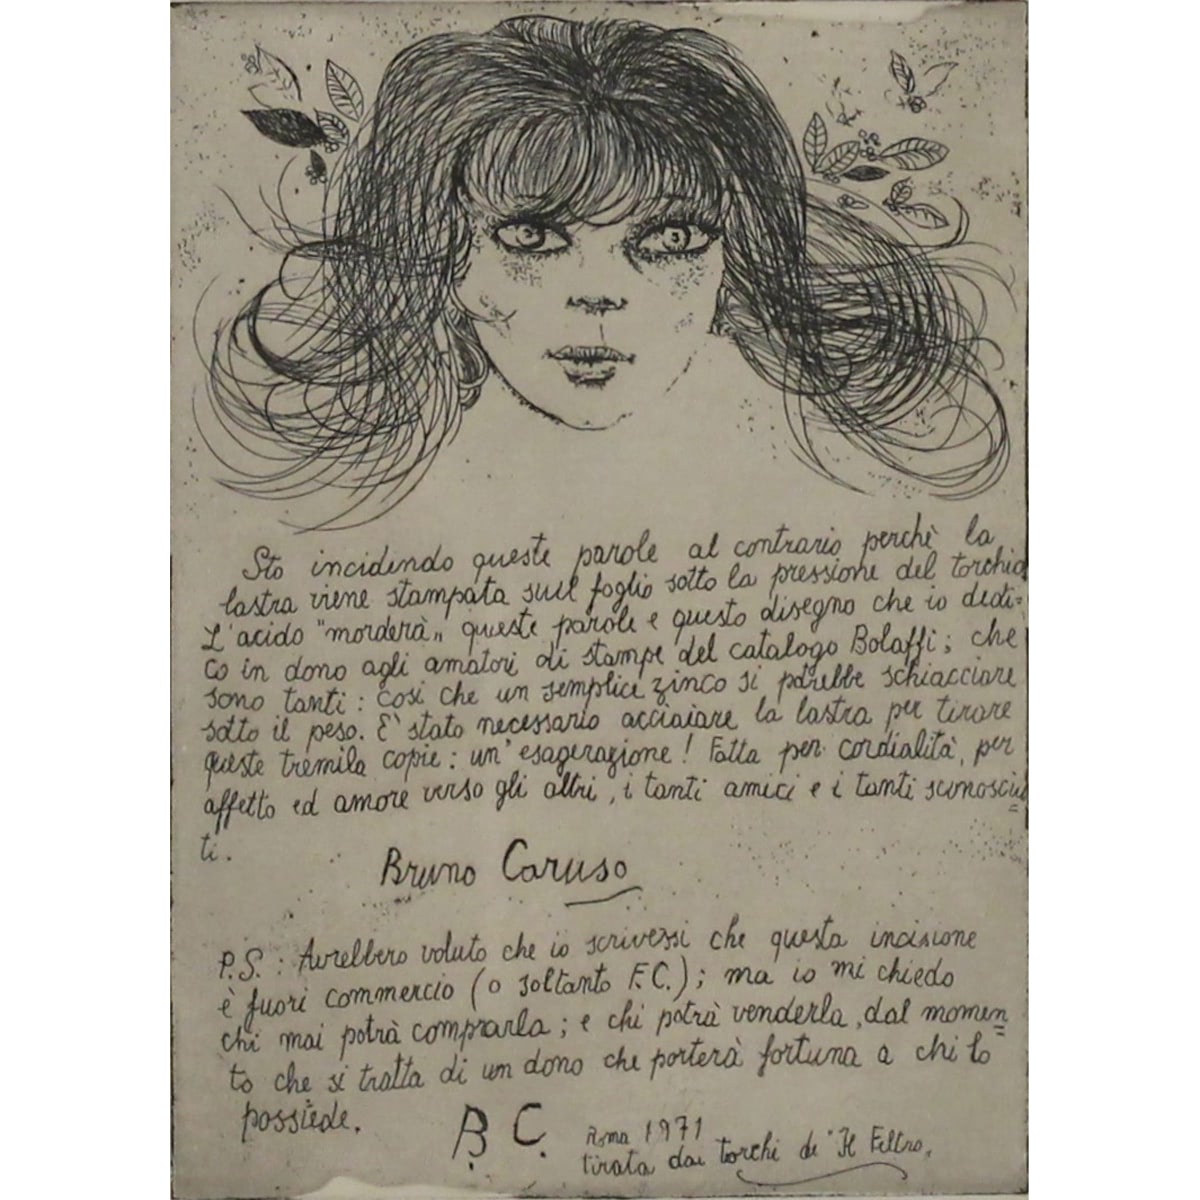 Sto incidendo queste parole al contrario perchè la
lastra viene stampata sull foglio sotto la pressione del torchio
L'acido "morderà„ queste parole e questo disegno che io dedi=
co in dono agli amatori di stampe del catalogo Bolaffi; che
sono tanti: così che un semplice zinco si potrebbe schiacciare
sotto il peso. E' stato necessario acciaiare la lastra per tirare
queste tremila copie: un'esagerazione! Fatta per cordialità, per
affetto ed amore verso gli altri, i tanti amici e i tanti sconosciu=
ti.
Bruno Caruso
P.S.: Avrebbero voluto che io scrivessi che questa incisione
è fuori commercio (o soltanto F.C.); ma io mi chiedo
chi mai potrà comprarla; e chi potrà venderla, dal momen=
to che si tratta di un dono che porterà fortuna a chi lo
possiede.
B. C.
Roma 1971
tirata dai torchi de "Il Filtro„